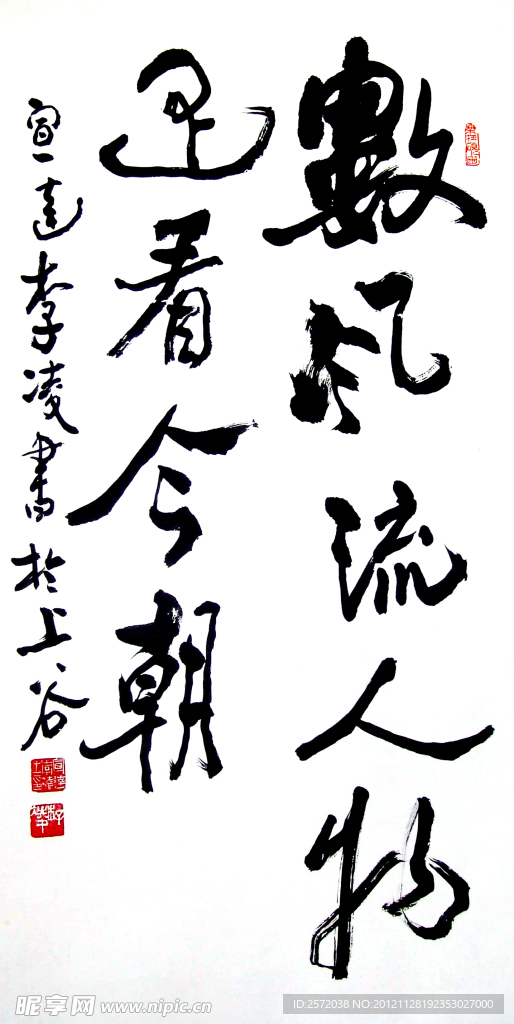 數風流人物
還看今朝
宣達李凌書於上谷
昵享网 www.nipic.cn
ID:2572038 NO:20121128192353027000